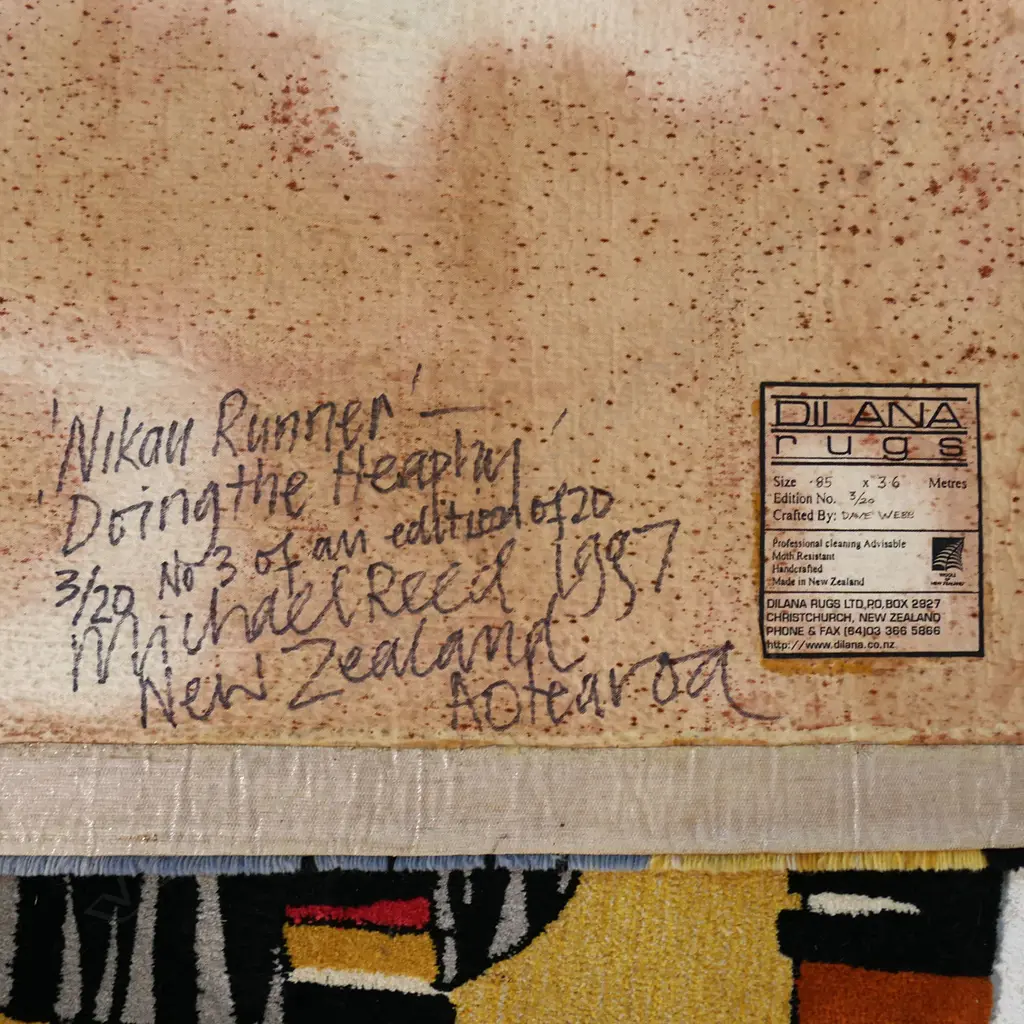 'Nikau Runner' —
'Doing the Heaphy'
3/20 No 3 of an edition of 20
Michael Reed 1997
New Zealand
Aotearoa
DILANA
rugs
Size .85 x 3.6 Metres
Edition No. 3/20
Crafted By: DAVE WEBB
Professional cleaning Advisable
Moth Resistant
Handcrafted
Made in New Zealand
WOOLS OF NEW ZEALAND
DILANA RUGS LTD, P.O. BOX 2927
CHRISTCHURCH, NEW ZEALAND
PHONE & FAX (64)03 366 5866
http://www.dilana.co.nz